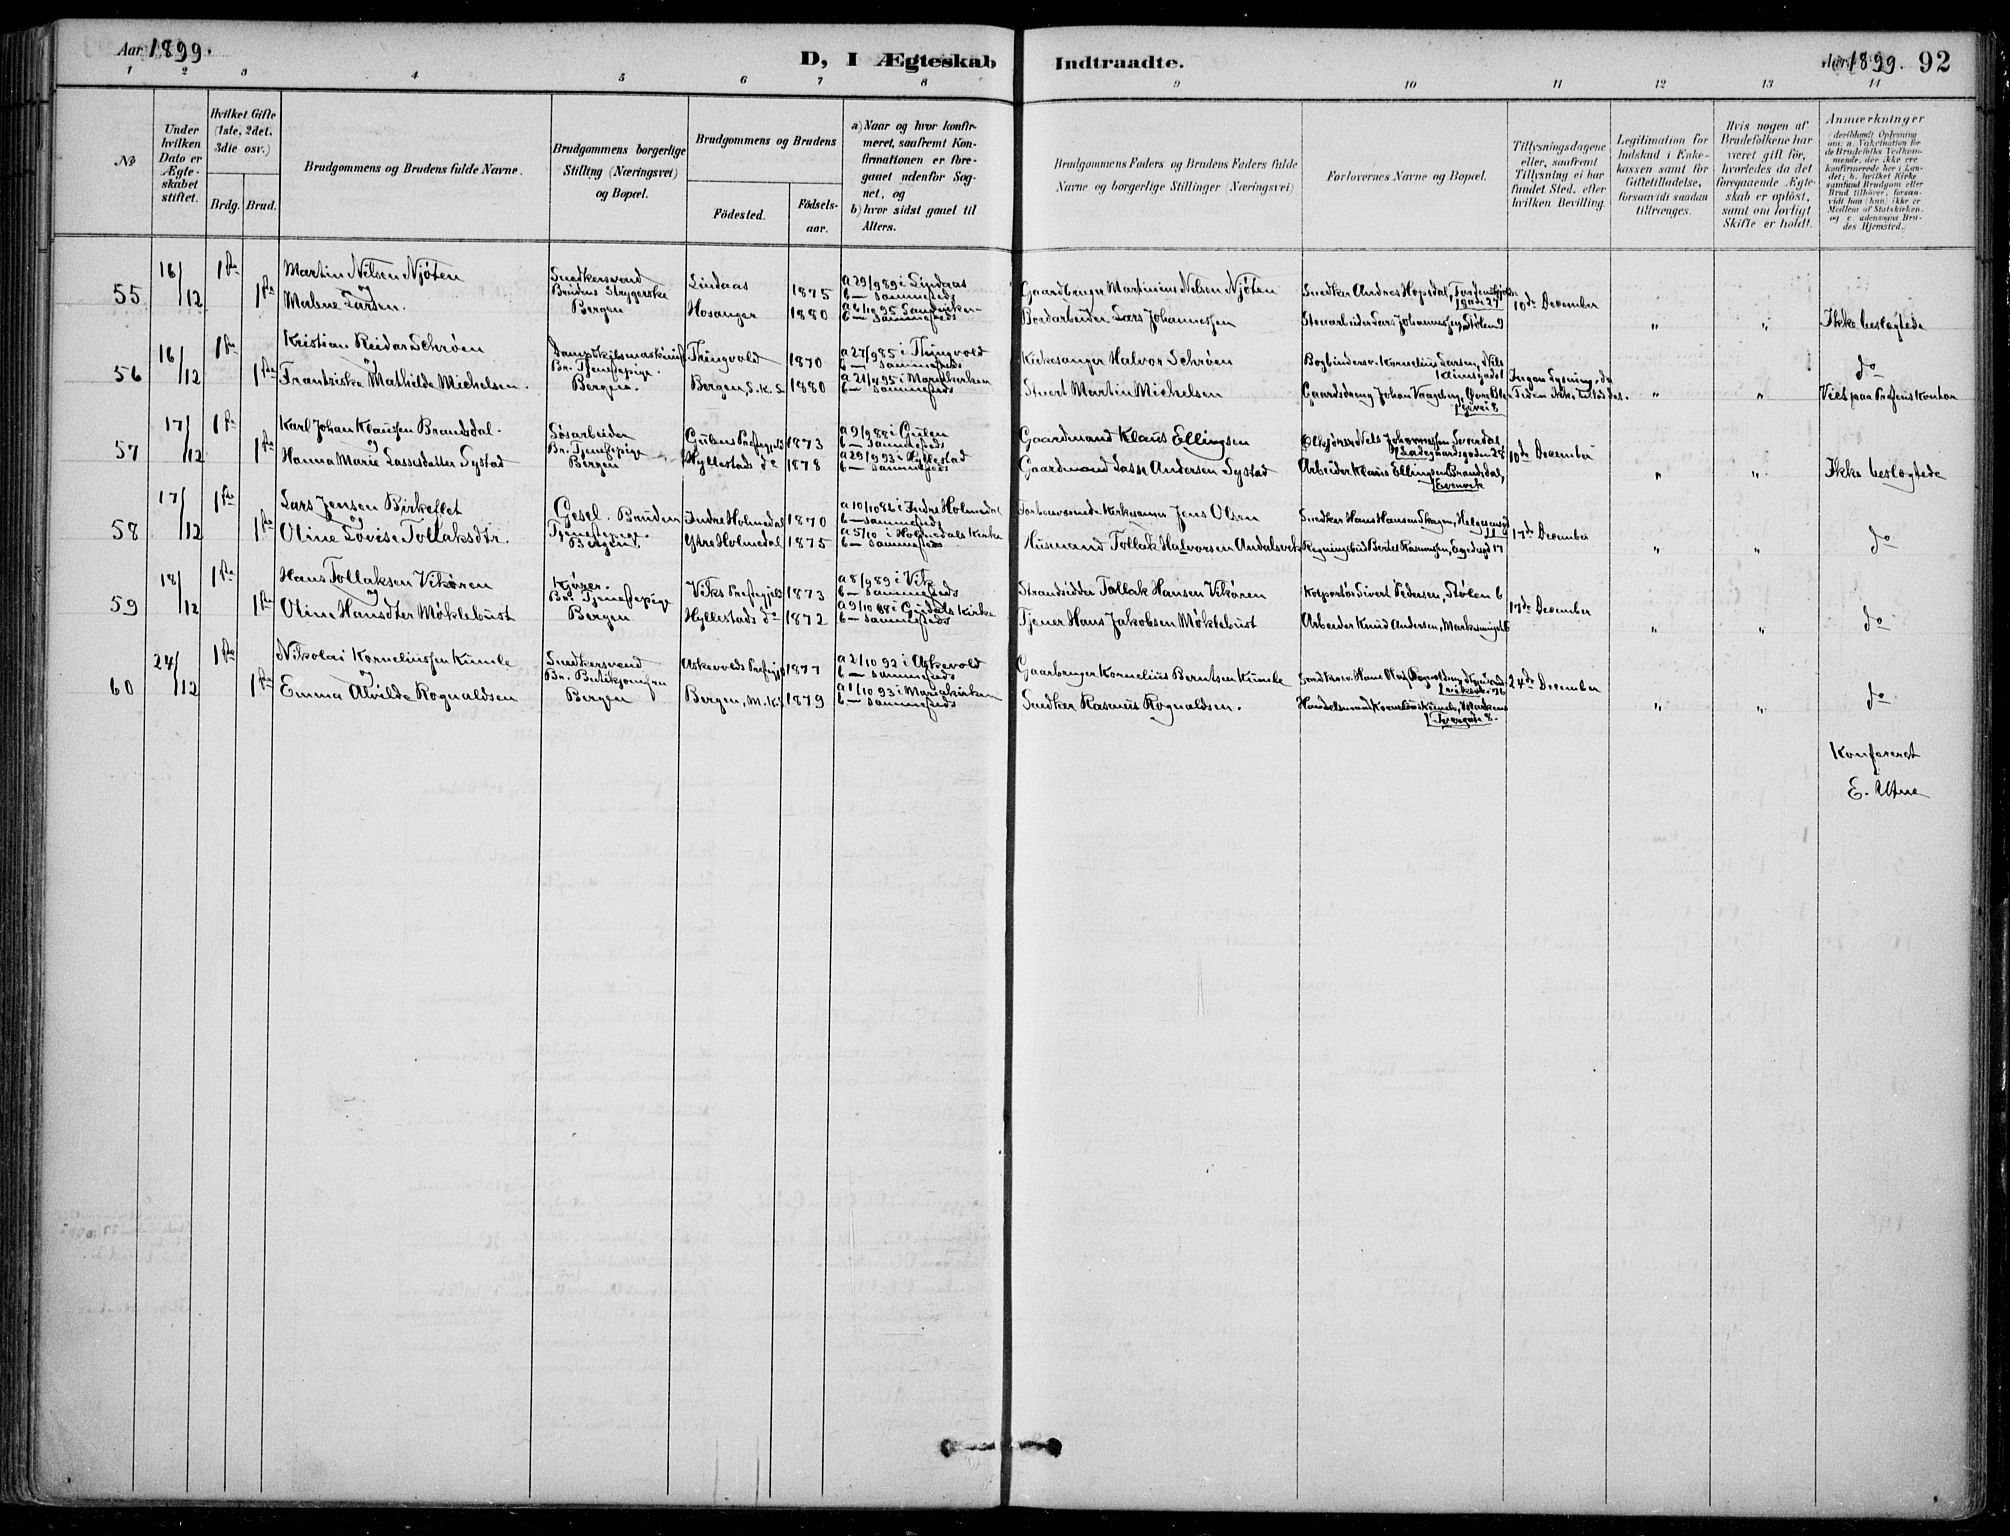 Aar 1899.
D, I Ægteskab Indtraadte.
Aar 1899. 92
1 2 3 4 5 6 7 8 9 10 11 12 13 14
No
Under hvilken Dato er Ægteskabet stiftet.
Hvilket Gifte (1ste, 2det, 3die osv.)
Brdg. Brud.
Brudgommens og Brudens fulde Navne.
Brudgommens borgerlige Stilling (Næringsvei) og Bopæl.
Brudgommens og Brudens
Fødested. Fødselsaar.
a) Naar og hvor konfirmeret, saafremt Konfirmationen er foregaaet udenfor Sognet, og
b) hvor sidst gaaet til Alters.
Brudgommens Faders og Brudens Faders fulde Navne og borgerlige Stillinger (Næringsvei)
Forlovernes Navne og Bopæl.
Tillysningsdagene eller, saafremt Tillysning ei har fundet Sted, efter hvilken Bevilling.
Legitimation for Indskud i Enkekassen samt for Giftetilladelse, forsaavidt saadan tiltrænges.
Hvis nogen af Brudefolkene har været gift før, hvorledes da det foregaaende Ægteskab er opløst, samt om lovligt Skifte er holdt.
Anmærkninger
(deriblandt Oplysning om: a. Vakcination for de Brudefolks Vedkommende, der ikke ere konfirmerede her i Landet; b. hvilket Kirkesamfund Brudgom eller Brud tilhører, forsaavidt han (hun) ikke er Medlem af Statskirken, og c. udensogns Brudes Hjemsted.)
55
16/12
1ste
1ste
Martin Nilsen Njøten
og
Malene Larsen.
Snedkersvend
Brudens Strygerske
Bergen
Lindaas 1875
Hosanger 1880
a 29/9 89 i Lindaas
b — sammesteds
a 6/10 95 Sandviken
b — sammesteds
Gaardbruger Martinius Nelsen Njøten
Bordarbeider Lars Johannessen
Snedker Andres Hopsdal,
Stenarbeider Lars Johannessen, Stølen 9
10de December
" "
Ikke beslægtede
56
16/12
1ste
1ste
Kristian Reidar Schrøen
og
Frantziske Mathilde Michelsen.
Dampskibsmaskinist
Br. Tjenestepige.
Bergen.
Thingvold 1870
Bergen, S. K. S. 1880
a 27/9 85 i Thingvold
b — sammesteds
a 21/4 95 i Mariakirken
b — sammesteds
Kirkesanger Halvor Schrøen
Stuert Martin Michelsen
Bogbinderv. Kornelius Larsen, Nils
Gaardsdreng Johan Vaagberg, Øvre Ble-
gevei 8
Ingen Lysning, da
Tiden ikke tillod det.
" "
do
Viet paa Præstens Kontor
57
17/12
1ste
1ste
Karl Johan Klausen Brandsdal.
og
Hanna Marie Lassesdatter Systad
Løsarbeider
Br. Tjenestepige
Bergen
Gulens Prestegjeld 1873
Hyllestads do 1878
a 9/9 88 i Gulen
b — sammesteds
a 29/9 93 i Hyllestad
b — sammesteds
Gaardmand Klaus Ellingsen
Gaardmand Lasse Andersen Systad
Nels Johannessen
Ladegaardsgaden 28
Arbeider Klaus Ellingsen Brandsdal,
Evenvik
10de December
" "
Ikke beslægtede
58
17/12
1ste
1ste
Lars Jensen Birkeflet
og
Oline Lovise Tollaksdtr.
Gesel. Bruden
Tjenestepige
Bergen.
Indre Holmedal 1870
Ytre Holmedal 1875
a 10/10 86 i Indre Holmedal
b — sammesteds
a 5/10 i Holmedals Kirke
b — sammesteds
Forhenværende Kirkesanger Jens Olsen
Husmand Tollak Halvorsen Andalsvik
Snedker Hans Hansen Skagen, Helgesensgd
11
Regningsbud Bertel Rasmussen, Egedesgd 17
17de December
" "
do
59
18/12
1ste
1ste
Hans Tollaksen Vikøren
og
Oline Hansdter Møklebust
Kjører.
Br. Tjenestepige
Bergen
Viks Prestegjeld 1873
Hyllestads do 1872
a 8/9 89 i Vik
b — sammesteds
a 9/10 88 i Guddals Kirke
b — sammesteds
Strandsidder Tollak Hansen Vikøren
Tjener Hans Jakobsen Møklebust
Kolportør Sivert Pedersen, Stølen 6
Arbeider Knud Andersen,
17de December
" "
do
60
24/12
1ste
1ste
Nikolai Korneliussen Kumle
og
Emma Alvilde Rognaldsen
Snedkersvend
Br. Butikjomfru
Bergen
Askevolds Prestegj. 1877
Bergen, M. K. S 1879
a 2/10 92 i Askevold
b — sammesteds
a 1/10 93 i Mariakirken
b — sammesteds
Gaardbruger Kornelius Berntsen Kumle
Snedker Rasmus Rognaldsen.
Snedkersv. Hans Olaf Rognaldsen,
Handelsmand Kornelius Kumle,
Tverrgade 8.
24de December
" "
do
Konfereret
E. Utne